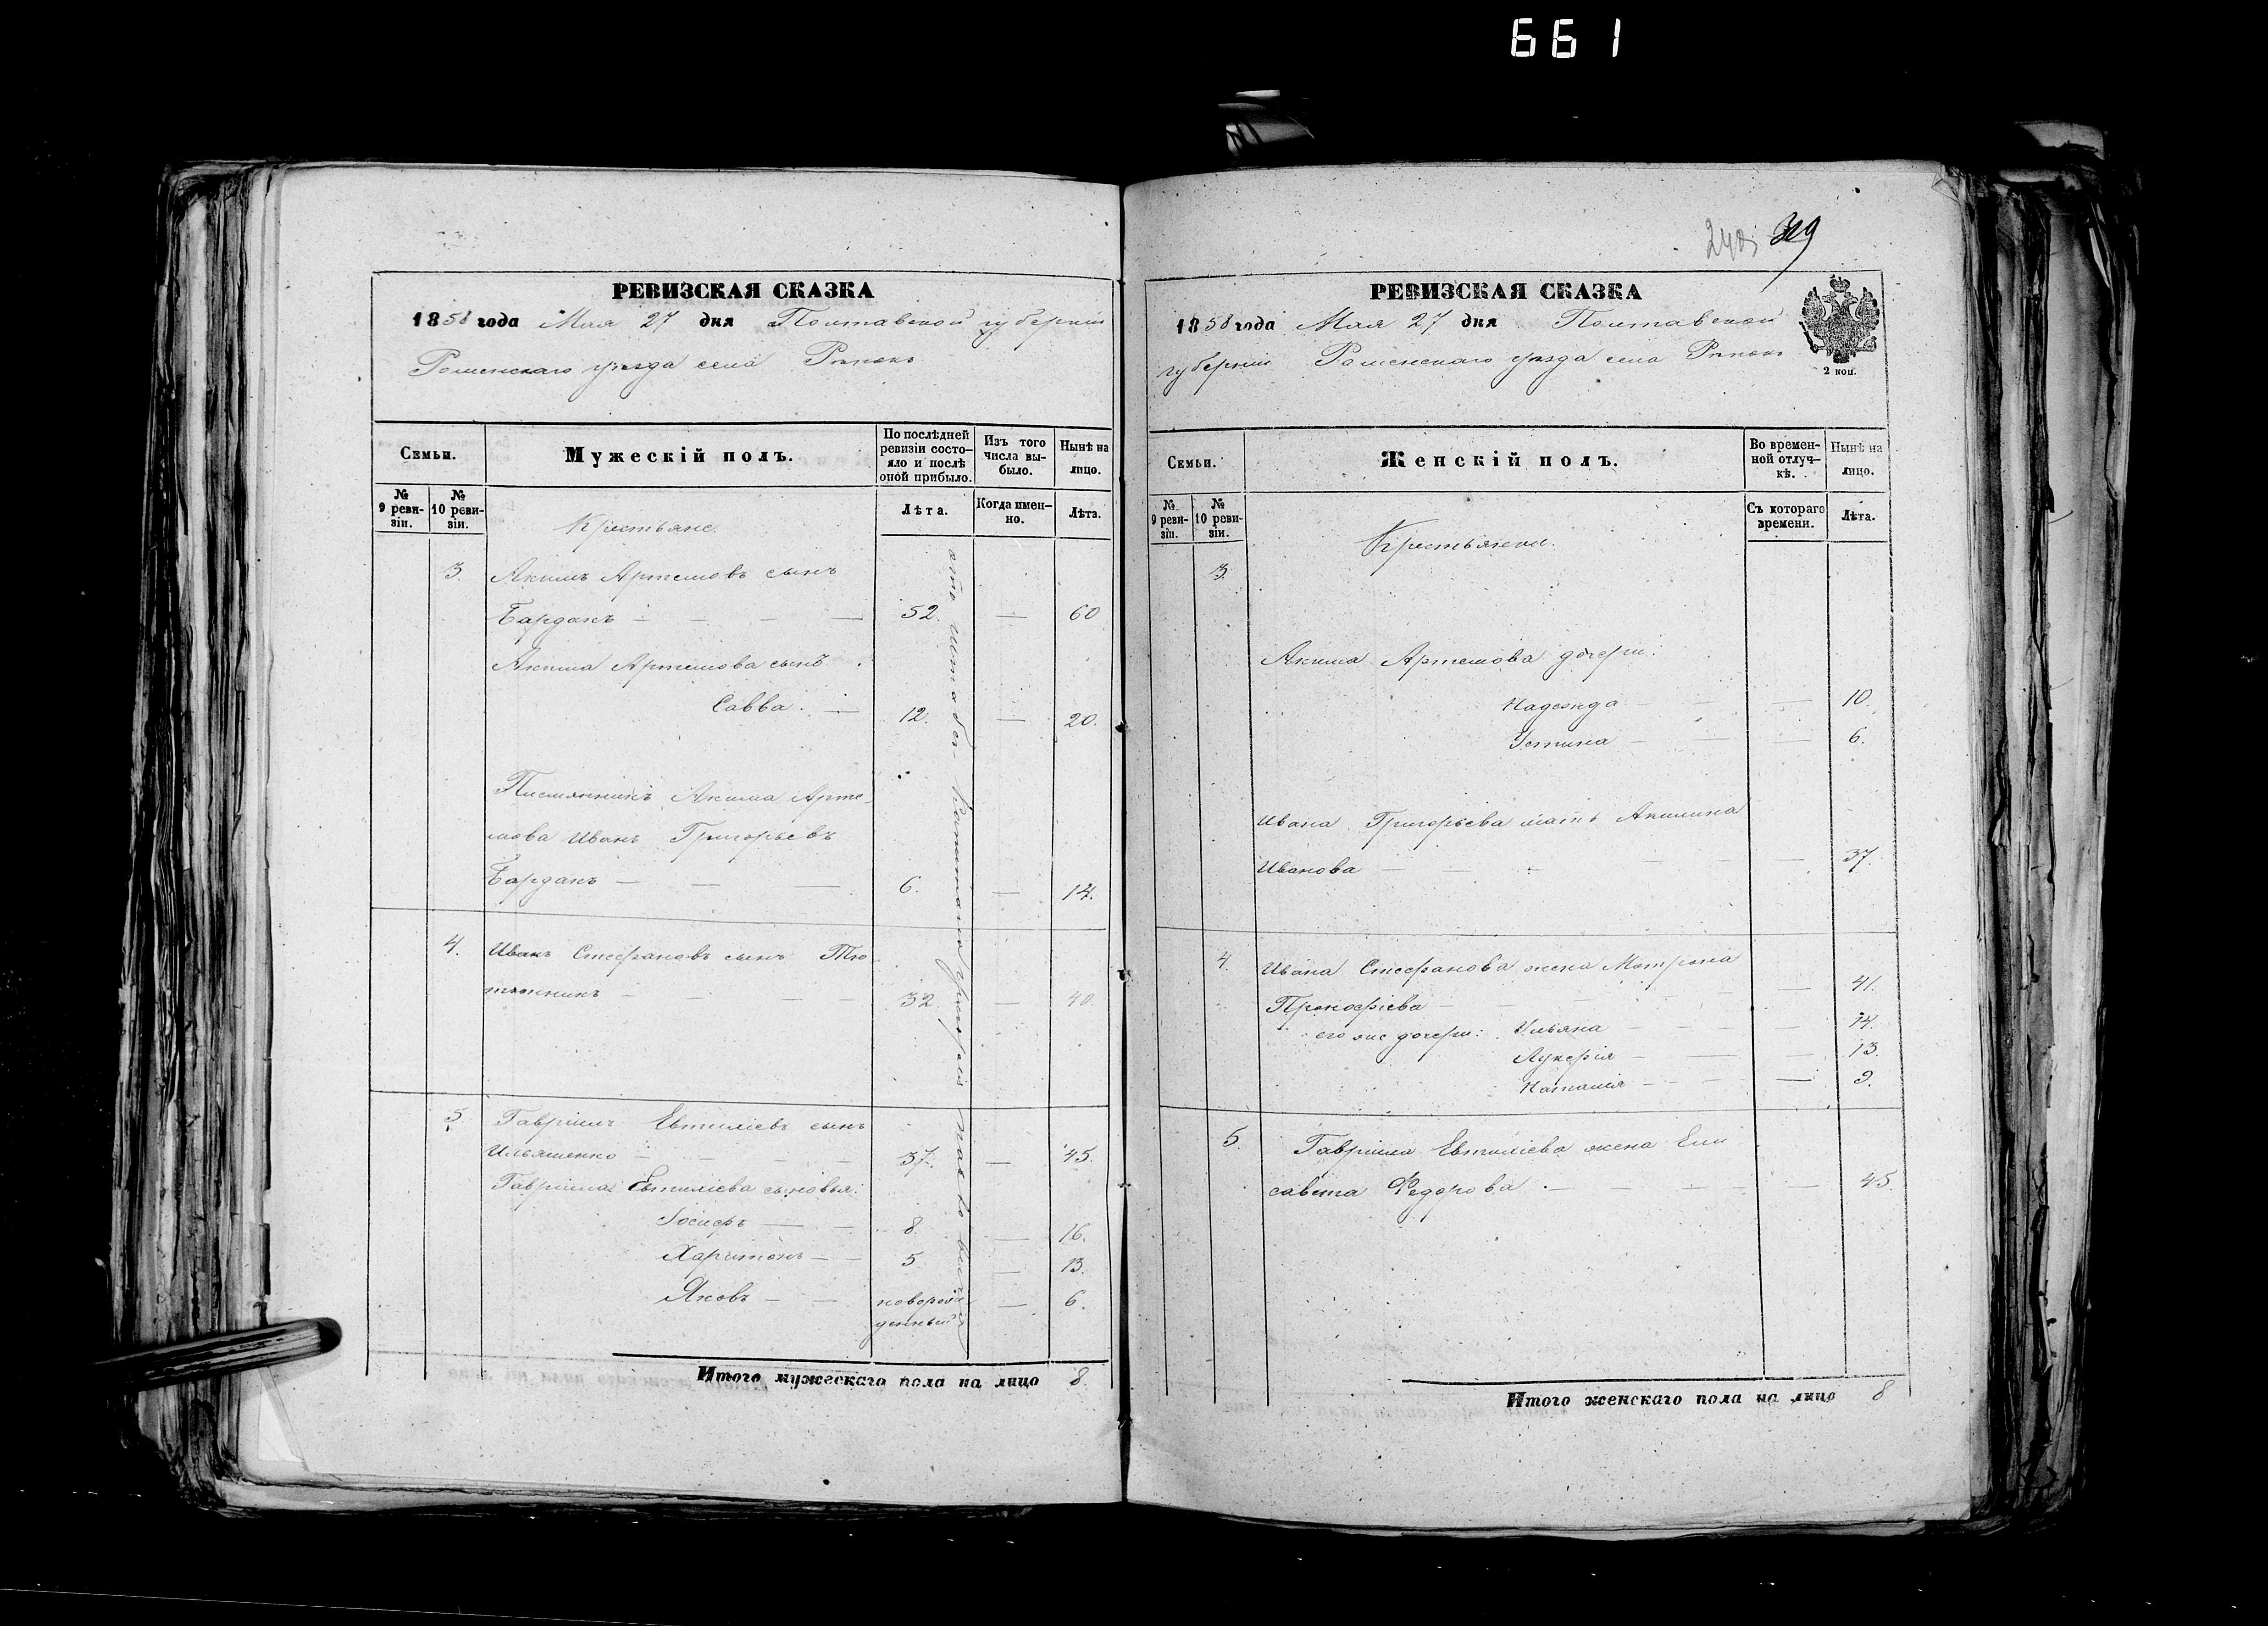 661
РЕВИЗСКАЯ СКАЗКА
1858 года Мая 27 дня Полтавской губернiи
Роменскаго уѣзда села
Семьи.
Мужескiй полъ.
По послѣдней ревизiи состояло и послѣ оной прибыло.
Изъ того числа выбыло.
Нынѣ на лицо.
№ 9 ревизiи.
№ 10 ревизiи.
Лѣта.
Когда именно.
Лѣта.
Крестьяне.
3. Акимъ Артемовъ сынъ
Барданъ — — — — 52. — 60
Акима Артемова сынъ
Савва. — 12. — 20.
Племянникъ Акима Арте-
мова Иванъ Григорьевъ
Барданъ — — — 6. — 14.
4. Иванъ Стефановъ сынъ Тю
тюнникъ — — — — 32. — 40.
5. Гаврiилъ Евтихiевъ сынъ
Ильяшенко — — — — 37. — 45.
Гаврiила Евтихiева сыновья:
Iосифъ — — 8. — 16.
Харитонъ — — 5. — 13.
Яковъ — — новорож
денный — 6.
Итого мужескаго пола на лицо 8
319
РЕВИЗСКАЯ СКАЗКА
1858 года Мая 27 дня Полтавской
губернiи Роменскаго уѣзда села
2 коп.
Семьи.
Женскiй полъ.
Во временной отлучкѣ.
Нынѣ на лицо.
№ 9 ревизiи.
№ 10 ревизiи.
Съ котораго времени.
Лѣта.
Крестьянки.
3.
Акима Артемова дочери:
Надежда — — — 10.
Устина — — — 6.
Ивана Григорьева мать Акилина
Иванова — — — — — 37.
4. Ивана Стефанова жена Матрона
Прокофiева — — — — — 41.
его же дочери: Ульяна — — — 14.
Лукерiя — — — 13.
Наталiя — — — 9.
5. Гаврiила Евтихiева жена Ели
савета Федорова. — — — — — 45.
Итого женскаго пола на лицо 8